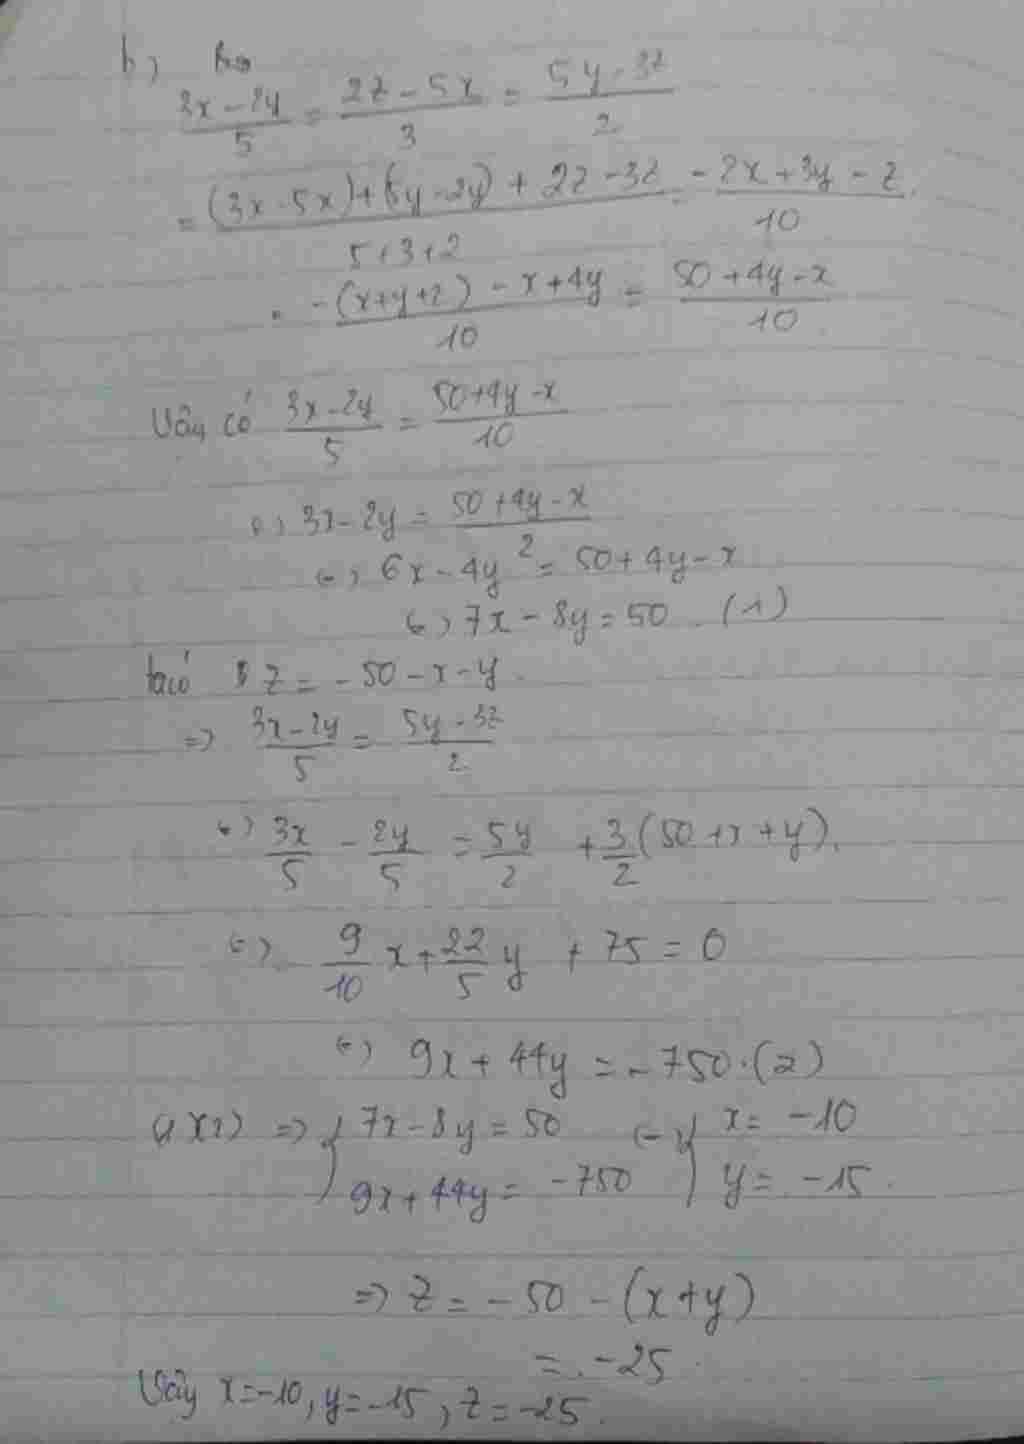 b)
\frac{3x-2y}{5} = \frac{2z-5x}{3} = \frac{5y-3z}{2}
= \frac{(3x-5x)+(5y-2y)+2z-3z}{5+3+2} = \frac{-2x+3y-z}{10}
= \frac{-(x+y+z)-x+4y}{10} = \frac{50+4y-x}{10}
Vậy có \frac{3x-2y}{5} = \frac{50+4y-x}{10}
(=) 3x-2y = \frac{50+4y-x}{2}
(=) 6x-4y = 50+4y-x
(=) 7x-8y=50. (1)
ta có z = -50-x-y.
=> \frac{3x-2y}{5} = \frac{5y-3z}{2}
(=) \frac{3x}{5} - \frac{2y}{5} = \frac{5y}{2} + \frac{3}{2}(50+x+y).
(=) \frac{9}{10}x + \frac{22}{5}y + 75 = 0
(=) 9x+44y = -750.(2)
(1)(2) => { 7x-8y=50 (=) { x= -10
9x+44y= -750 y= -15.
=> z = -50-(x+y)
= -25.
Vậy x=-10, y=-15, z=-25.